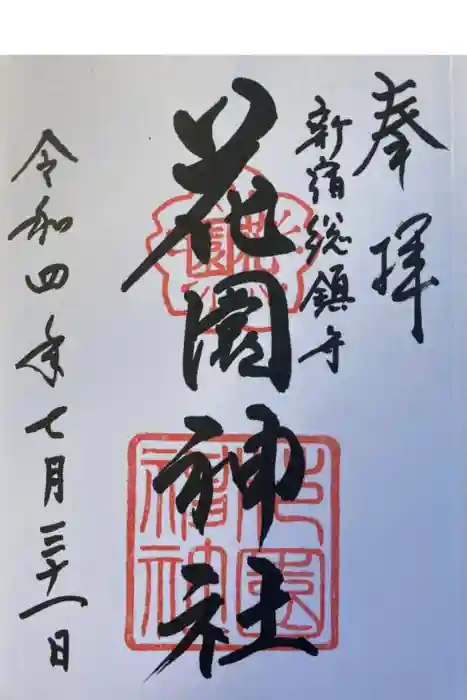 奉拝
新宿総鎮守
花園神社
令和四年七月三十一日
花園
花園神社